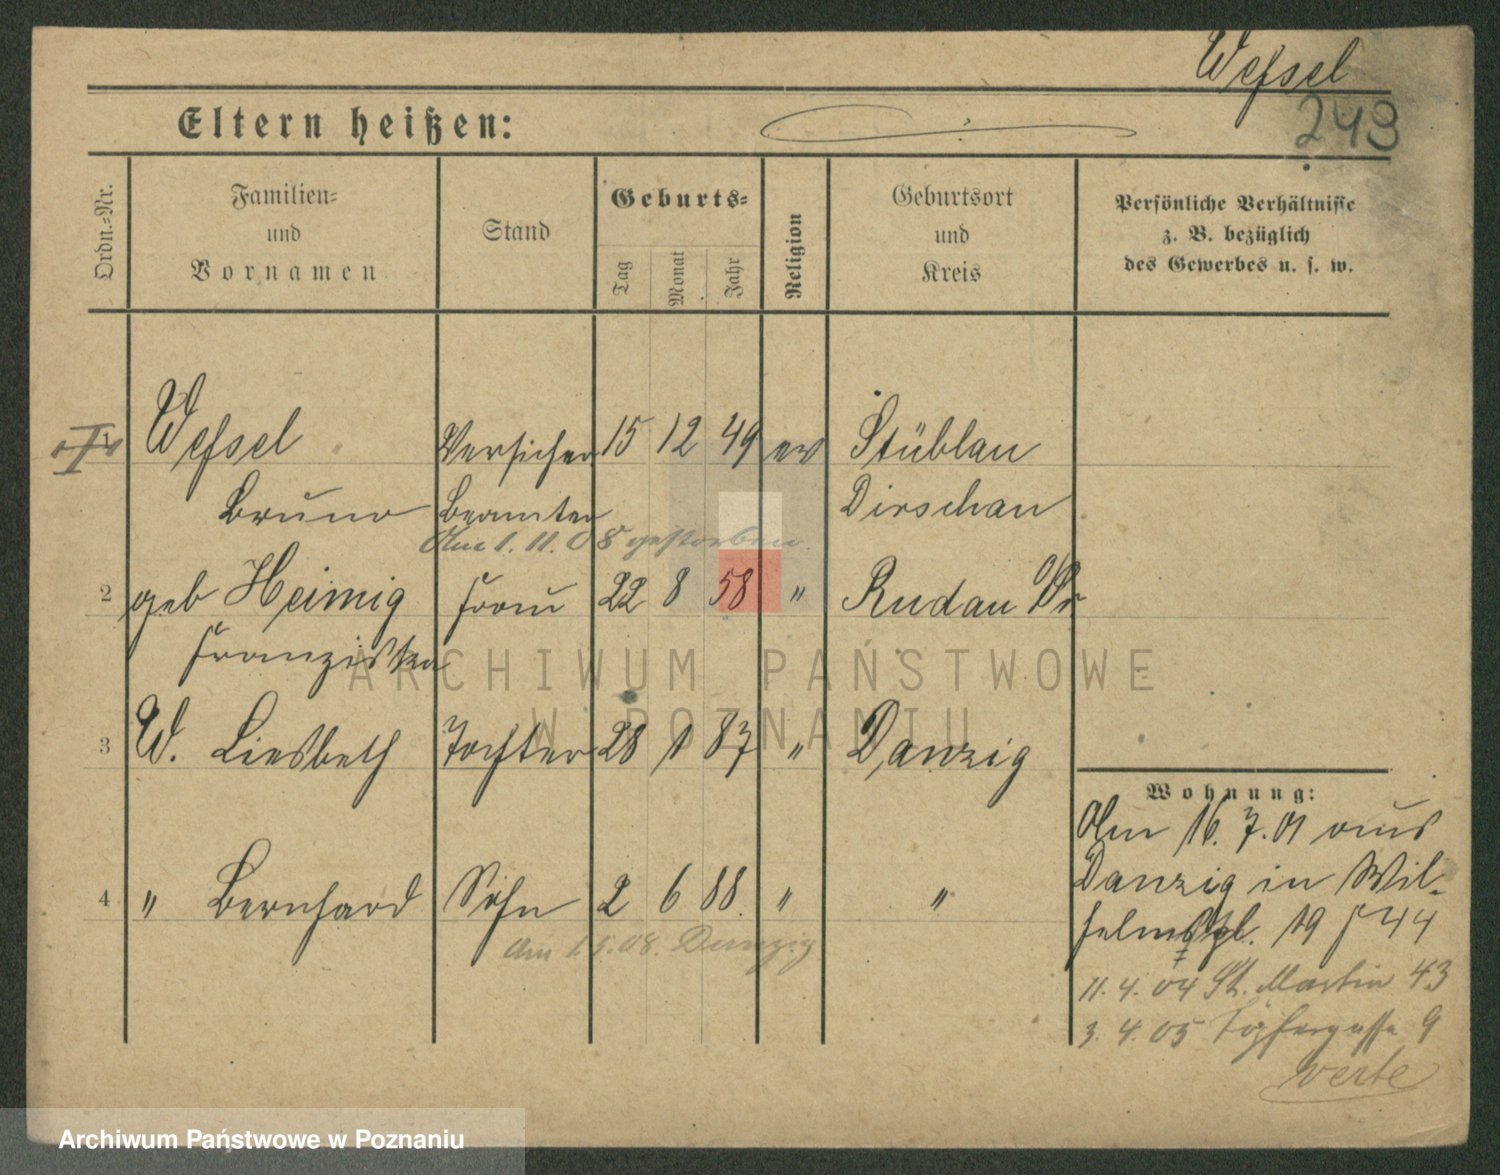 Wessel
249
Eltern heißen:
Ordn.-Nr.
Familien- und Vornamen
Stand
Geburts-
Tag
Monat
Jahr
Religion
Geburtsort und Kreis
Persönliche Verhältnisse
z. B. bezüglich
des Gewerbes u. s. w.
Wessel Versicher 15 12 49 ev Stüblau
Bruno Beamter Dirschau
Am 1.11.08 gestorben.
2 geb Heimig Frau 22 8 58 " Rudau O/Pr
Franziska
ARCHIWUM PAŃSTWOWE
W POZNANIU
3 W. Liesbeth Tochter 28 1 87 " Danzig
Wohnung:
Am 16.7.01 aus
Danzig in Wil-
4 " Bernhard Sohn 2 6 88. " "
helmspl. 19
Danzig
11.4.04 St. Martin 43
3.4.05 Töpfergasse 9
verte
Archiwum Państwowe w Poznaniu